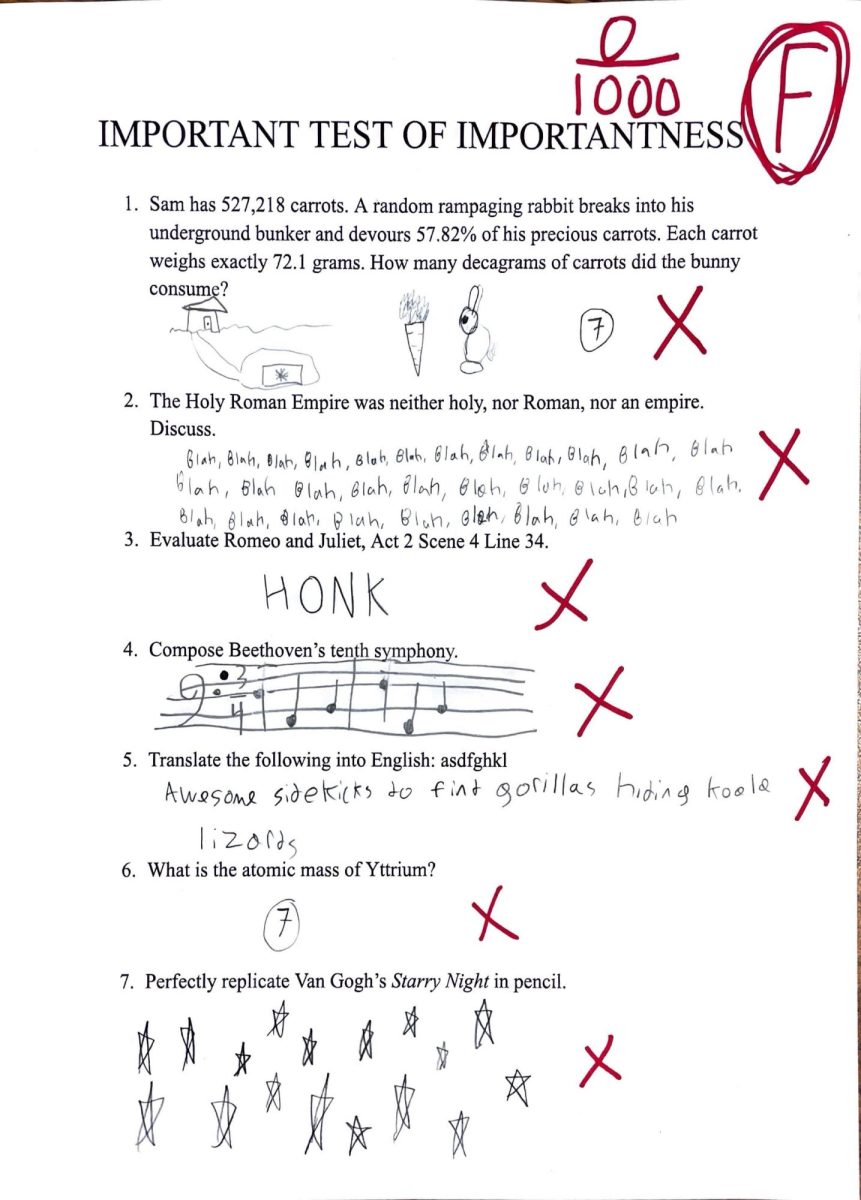 0
1000
F
IMPORTANT TEST OF IMPORTANTNESS
1. Sam has 527,218 carrots. A random rampaging rabbit breaks into his
underground bunker and devours 57.82% of his precious carrots. Each carrot
weighs exactly 72.1 grams. How many decagrams of carrots did the bunny
consume?
7 X
2. The Holy Roman Empire was neither holy, nor Roman, nor an empire.
Discuss.
Blah, Blah, Blah, Blah, Blah, Blah, Blah, Blah, Blah, Blah, Blah, Blah
Blah, Blah Blah, Blah, Blah, Blah, Blah, Blah, Blah, Blah.
Blah, Blah, Blah, Blah, Blah, Blah, Blah, Blah, Blah
X
3. Evaluate Romeo and Juliet, Act 2 Scene 4 Line 34.
HONK X
4. Compose Beethoven’s tenth symphony.
3
4
X
5. Translate the following into English: asdfghkl
Awesome sidekicks to find gorillas hiding koala X
lizards
6. What is the atomic mass of Yttrium?
7 X
7. Perfectly replicate Van Gogh’s Starry Night in pencil.
X